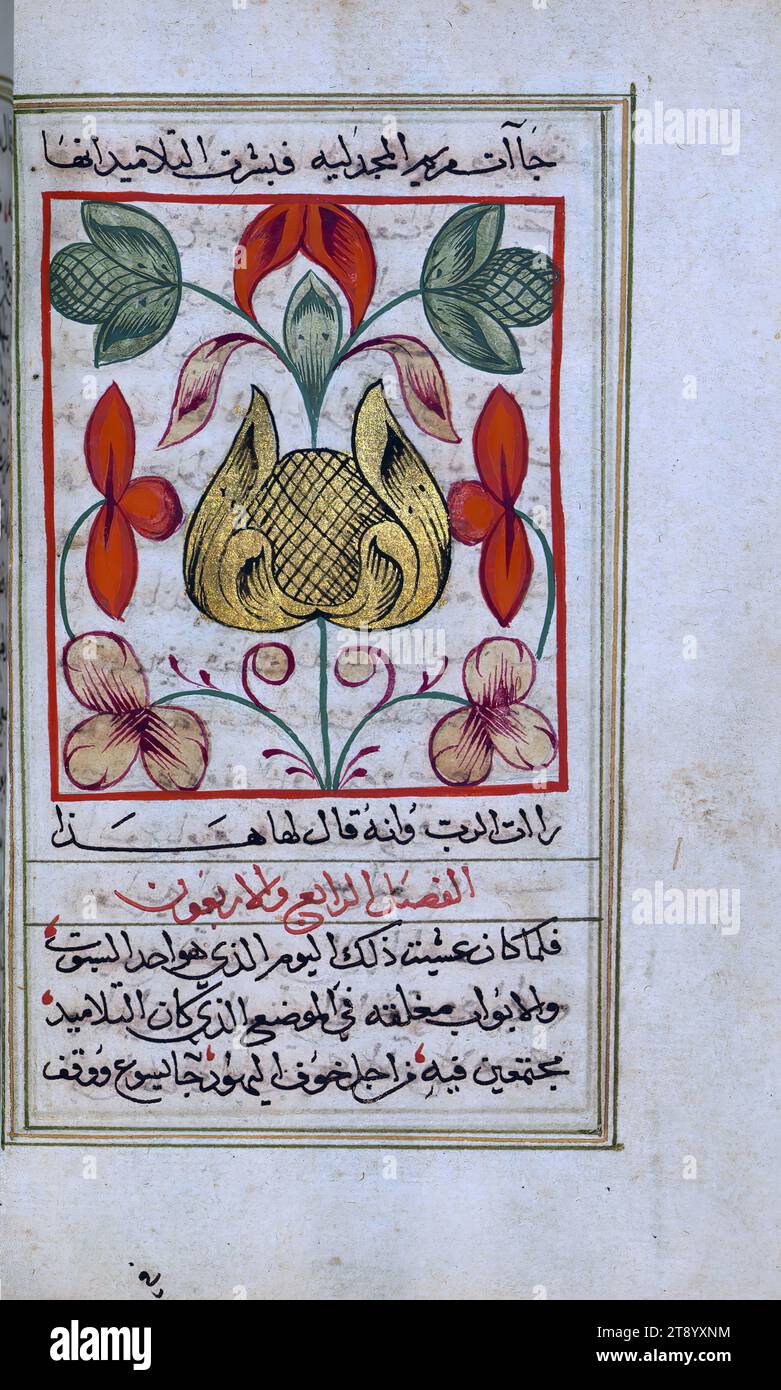 جاآت مريم المجدليه فبشرت التلاميد انها
راات الرب وانهُ قال لها هذا
الفصل الرابع والاربعون
فلما كان عشيت ذلك اليوم الذي هو احد السبوت
والابواب مغلقه في الموضع الذي كان التلاميد
مجتمعين فيه من اجل خوف اليهود جا يسوع ووقف
في
alamy
Image ID: 2T8YXNM
www.alamy.com